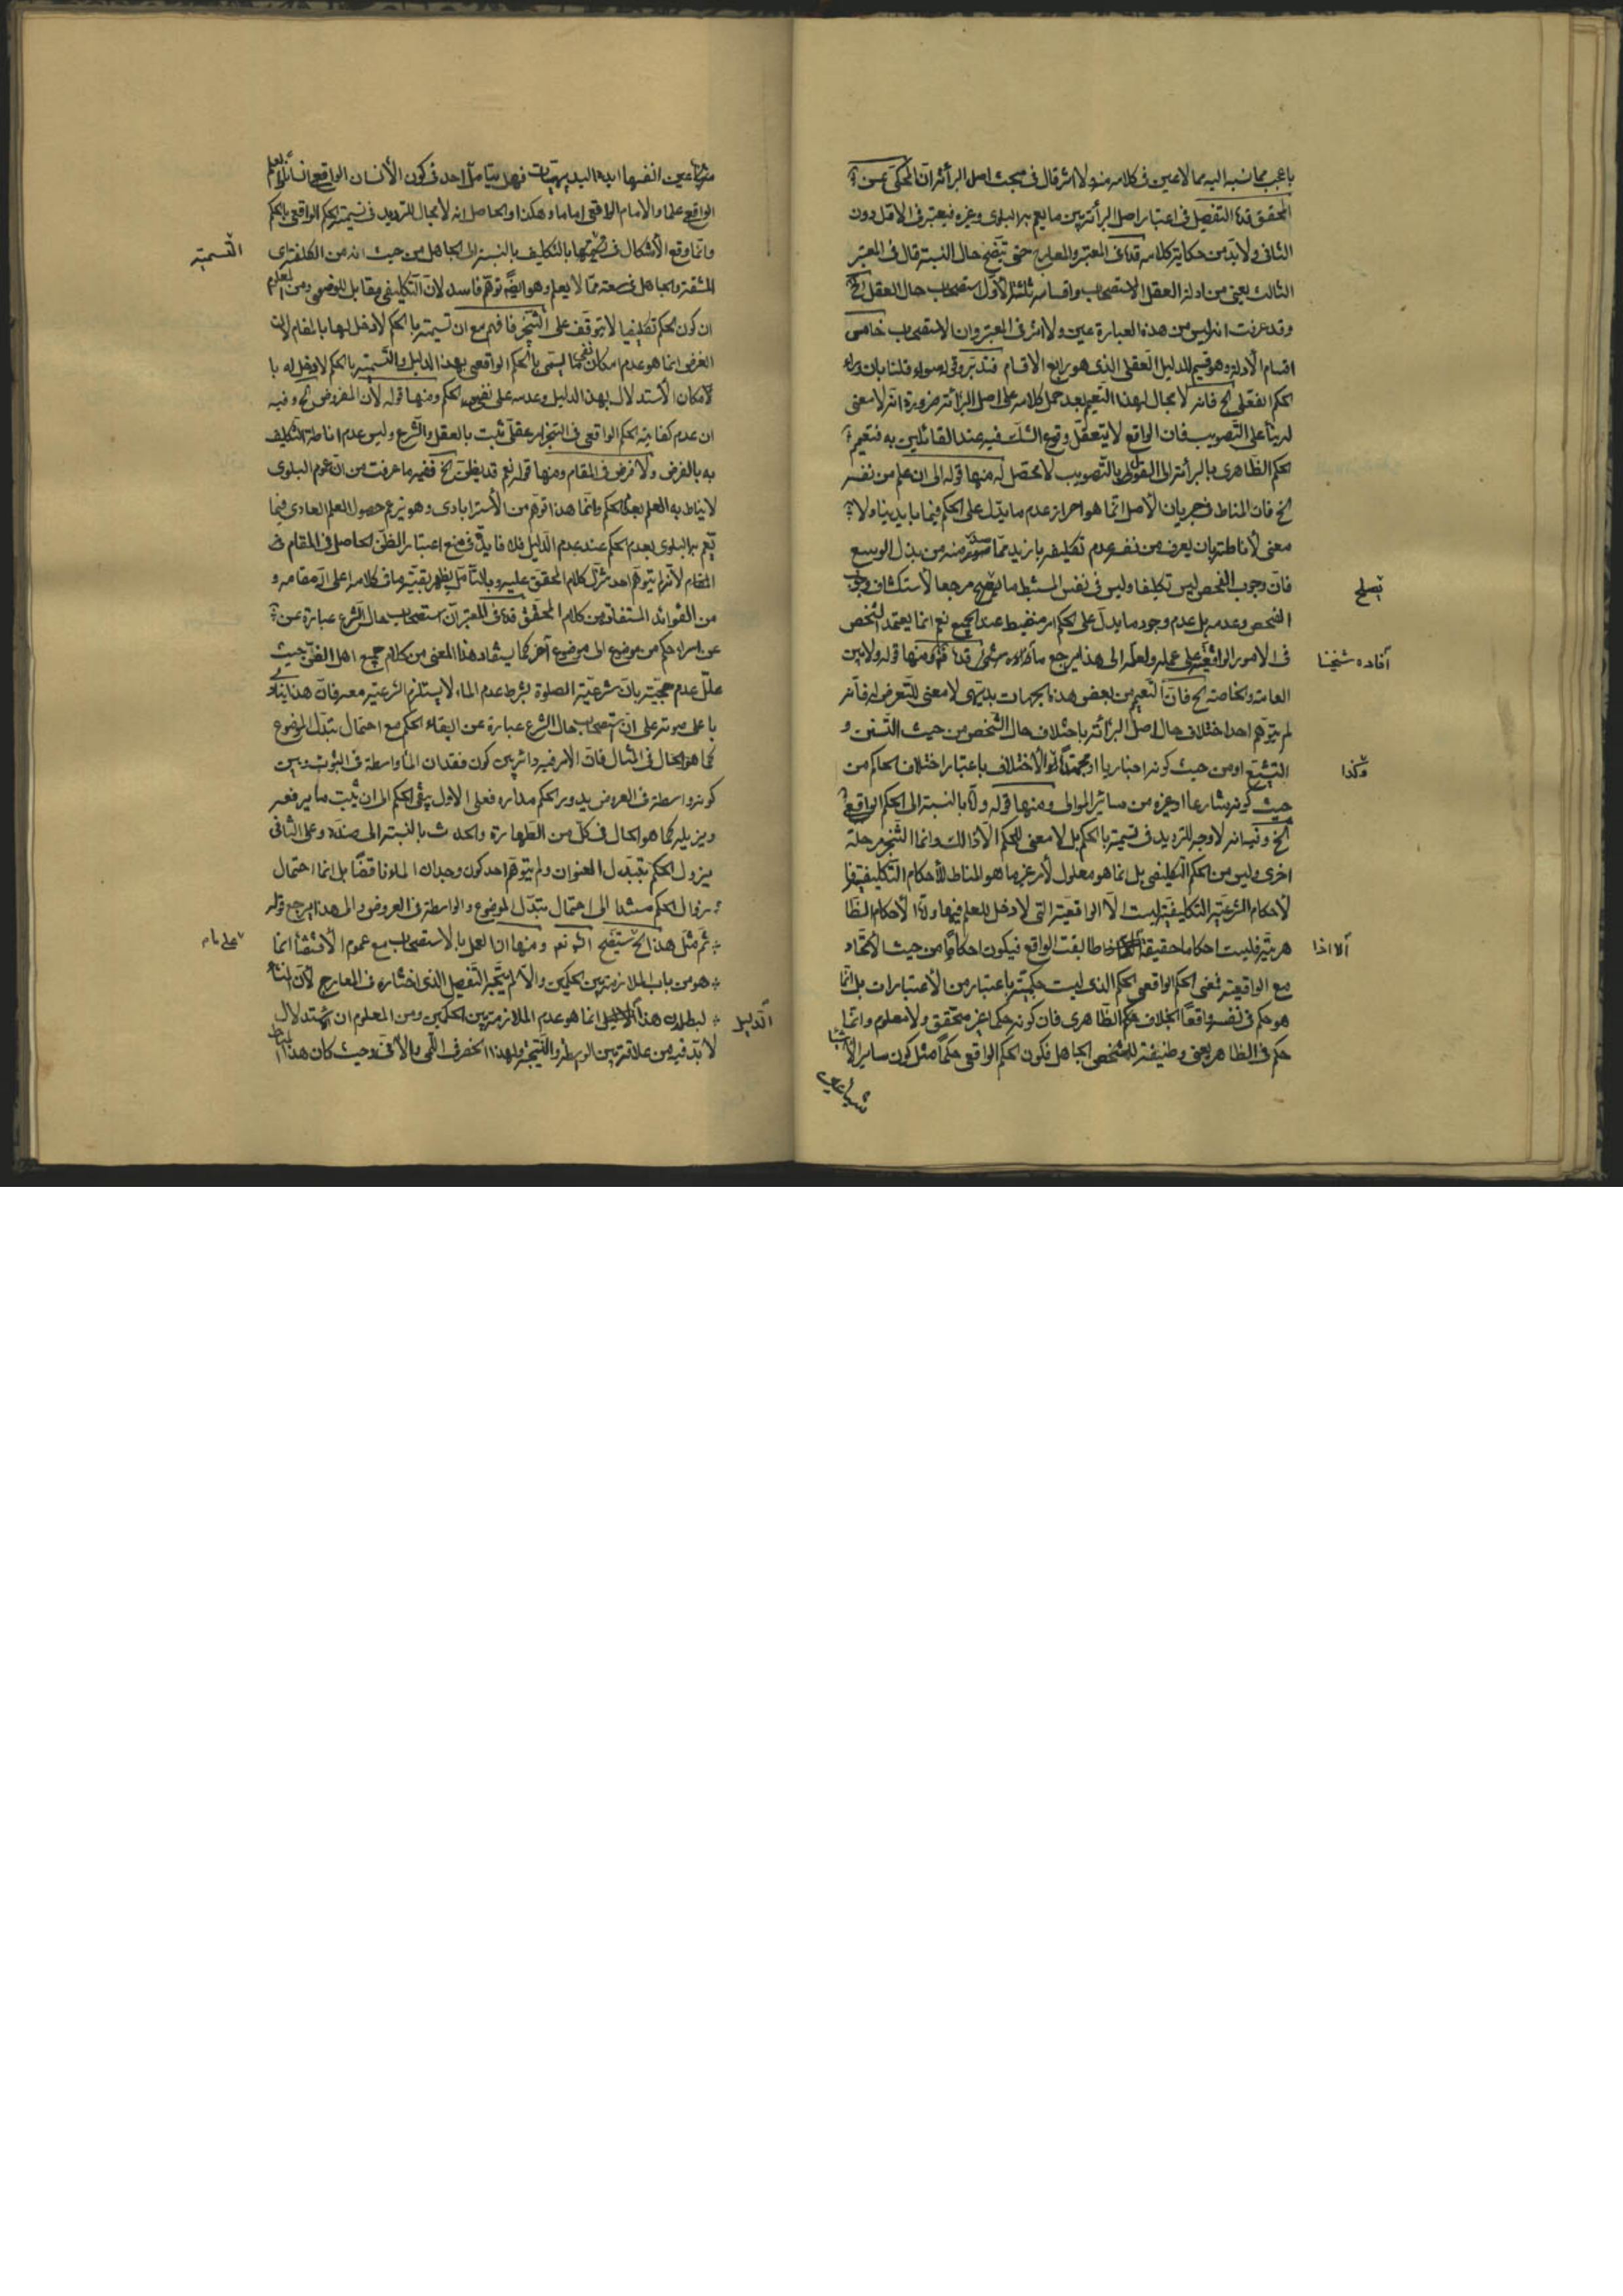 باعجب مما نسبه اليه مما لا عين فى كلامه منه ولا اثر قال فى مبحث اصل البرائة ان المحكى عن
المحقق قده التفصيل فى اعتبار اصل البرائة بين ما يعم به البلوى وغيره فيعتبر فى الاول دون
الثانى ولا بد من حكاية كلامه قده فى المعتبر والمعارج حتى يتضح حال النسبة قال فى المعتبر
الثالث يعنى من ادلة العقل الاستصحاب واقسامه ثلثة الاول استصحاب حال العقل الخ
وقد عرفت انه ليس من هذه العبارة عين ولا اثر فى المعتبر وان الاستصحاب خامس
اقسام الأدلة وهو قسيم للدليل العقلى الذى هو رابع الاقسام فتدبر وقوله سواء قلنا بان وراء
الحكم الفعلى الخ فانه لا مجال لهذا التعميم بعد حمل كلامه على اصل البرائة ضرورة انه لا معنى
له بناء على التصويب فان الواقع لا يتعقل وقوع الشك فيه عند القائلين به فتعميم
الحكم الظاهرى بالبرائة الى القول بالتصويب لا محصل له منها قوله الى ان علم من نفسه
الخ فان المناط فى جريان الأصل انما هو احراز عدم ما يدل على الحكم فيما بايدينا ولا
معنى لأناطته بان يعرف من نفسه عدم تكليفه بازيد مما صدر منه من بذل الوسع
فان وجوب الفحص ليس تكليفا وليس فى نفس المستنبط ما يصلح مرجعا لأستكشاف وجوب
الفحص وعدمه بل عدم وجود ما يدل على الحكم امر منضبط عند الجميع نعم انما يعتمد الشخص
فى الامور الواقعية على عمله ولعله الى هذا يرجع ما افاده شيخنا قده ومنها قوله ولا بين
العامة والخاصة الخ فان التعميم من بعض هذه الجهات بديهى لا معنى للتعرض له فانه
لم يتوهم احد اختلاف حال اصل البرائة باختلاف حال الشخص من حيث التسنن و
التشيع او من حيث كونه اخباريا او مجتهدا وكذا الأختلاف باعتبار اختلاف الحاكم من
حيث كونه شارعا او غيره من سائر الموالى ومنها قوله ولا بالنسبة الى الحكم الواقعى
الخ وفيه انه لا وجه للترديد فى تسميته بالحكم بل لا معنى للحكم الا ذلك وانما التنجز مرحلة
اخرى وليس من الحكم التكليفى بل انما هو معلول لأمر غير ما هو المناط للأحكام التكليفية فا
لأحكام الشرعية التكليفية ليست الا الواقعية التى لا دخل للعلم فيها واما الأحكام الظا
هرية فليست احكاما حقيقة الا اذا طابقت الواقع فيكون احكاما من حيث الاتحاد
مع الواقعية فمعنى الحكم الواقعى الحكم الذى ليست حكميته باعتبار من الأعتبارات بل انما
هو حكم فى نفسه واقعا بخلاف الحكم الظاهرى فان كونه حكما غير متحقق ولا معلوم وانما
حكم فى الظاهر يعنى وظيفة للشخص الجاهل فكون الحكم الواقعى حكما مثل كون ساير الأشيا
يصلح
أفاده شيخنا
وكذا
الا اذا
عين انفسها ابده البديهيات فهل يتامل احد فى كون الأنسان الواقعى انسانا والعلم
الواقعى علما والامام الواقعى اماما وهكذا والحاصل انه لا مجال للترديد فى تسمية الحكم الواقعى بالحكم
وانما وقع الأشكال فى تسميتها بالتكليف بالنسبة الى الجاهل من حيث انه من الكلفة
المشقة والجاهل فى سعة مما لا يعلم وهو ايضا توهم فاسد لأن التكليفى مقابل للوضعى ومن المعلوم
ان كون الحكم تكليفيا لا يتوقف على التنجز فافهم مع ان تسميته بالحكم لا دخل لها بالمقام لان
الغرض انما هو عدم امكان نفى ما يسمى بالحكم الواقعى بهذا الدليل والتسمية بالحكم لا دخل له با
لأمكان الأستدلال بهذا الدليل وعدمه على نفس الحكم ومنها قوله لأن المفروض الخ وفيه
ان عدم كفاية الحكم الواقعى فى التنجز امر عقلى ثبت بالعقل والشرع وليس عدم اناطة التكليف
به بالفرض ولا فرض فى المقام ومنها قوله نعم قد يظن الخ ففيه ما عرفت من ان عموم البلوى
لا يناط به العلم بعدم الحكم وانما هذا توهم من الأسترابادى وهو يزعم حصول العلم العادى فيما
تعم به البلوى بعدم الحكم عند عدم الدليل فلا فايدة فى منع اعتبار الظن الحاصل فى المقام فى
المقام لأنه لم يتوهم احد تنزل كلام المحقق عليه وبالتأمل يظهر بقية ما فى كلامه اعلى الله مقامه و
من الفوائد المستفادة من كلام المحقق قده فى المعتبر ان استصحاب حال الشرع عبارة عن
عن اسراء حكم من موضوع الى موضوع آخر كما يستفاد هذا المعنى من كلام جميع اهل الفن حيث
علل عدم حجيته بان شرعية الصلوة بشرط عدم الماء لا يستلزم الشرعية معه فان هذا ينا
باعلى صوته على ان استصحاب حال الشرع عبارة عن ابقاء الحكم مع احتمال تبدل الموضوع
كما هو الحال فى المثال فان الامر فيه دائر بين كون فقدان الماء واسطة فى الثبوت وبين
كونه واسطة فى العروض يدور الحكم مداره فعلى الاول يبقى الحكم الى ان يثبت ما يرفعه
ويزيله كما هو الحال فى كل من الطهارة والحدث بالنسبة الى ضده وعلى الثانى
يزول الحكم بتبدل العنوان ولم يتوهم احد كون وجدان الماء ناقضا بل انما احتمال
زوال الحكم مستند الى احتمال تبدل الموضوع والواسطة فى العروض والى هذا يرجع قوله
ثم مثل هذا الخ ومنها ان العمل بالاستصحاب مع عموم الأقتضاء انما
هو من باب الملازمة بين الحكمين والا لم يتجه التفصيل الذى اختاره فى المعارج لأن المنشأ
لبطلان هذا الدليل انما هو عدم الملازمة بين الحكمين ومن المعلوم ان الأستدلال
لا بد فيه من علاقة بين الوسط والنتيجة ولهذا انحصر فى اللمى والأنى وحيث كان هذا
التسمية
الدليل